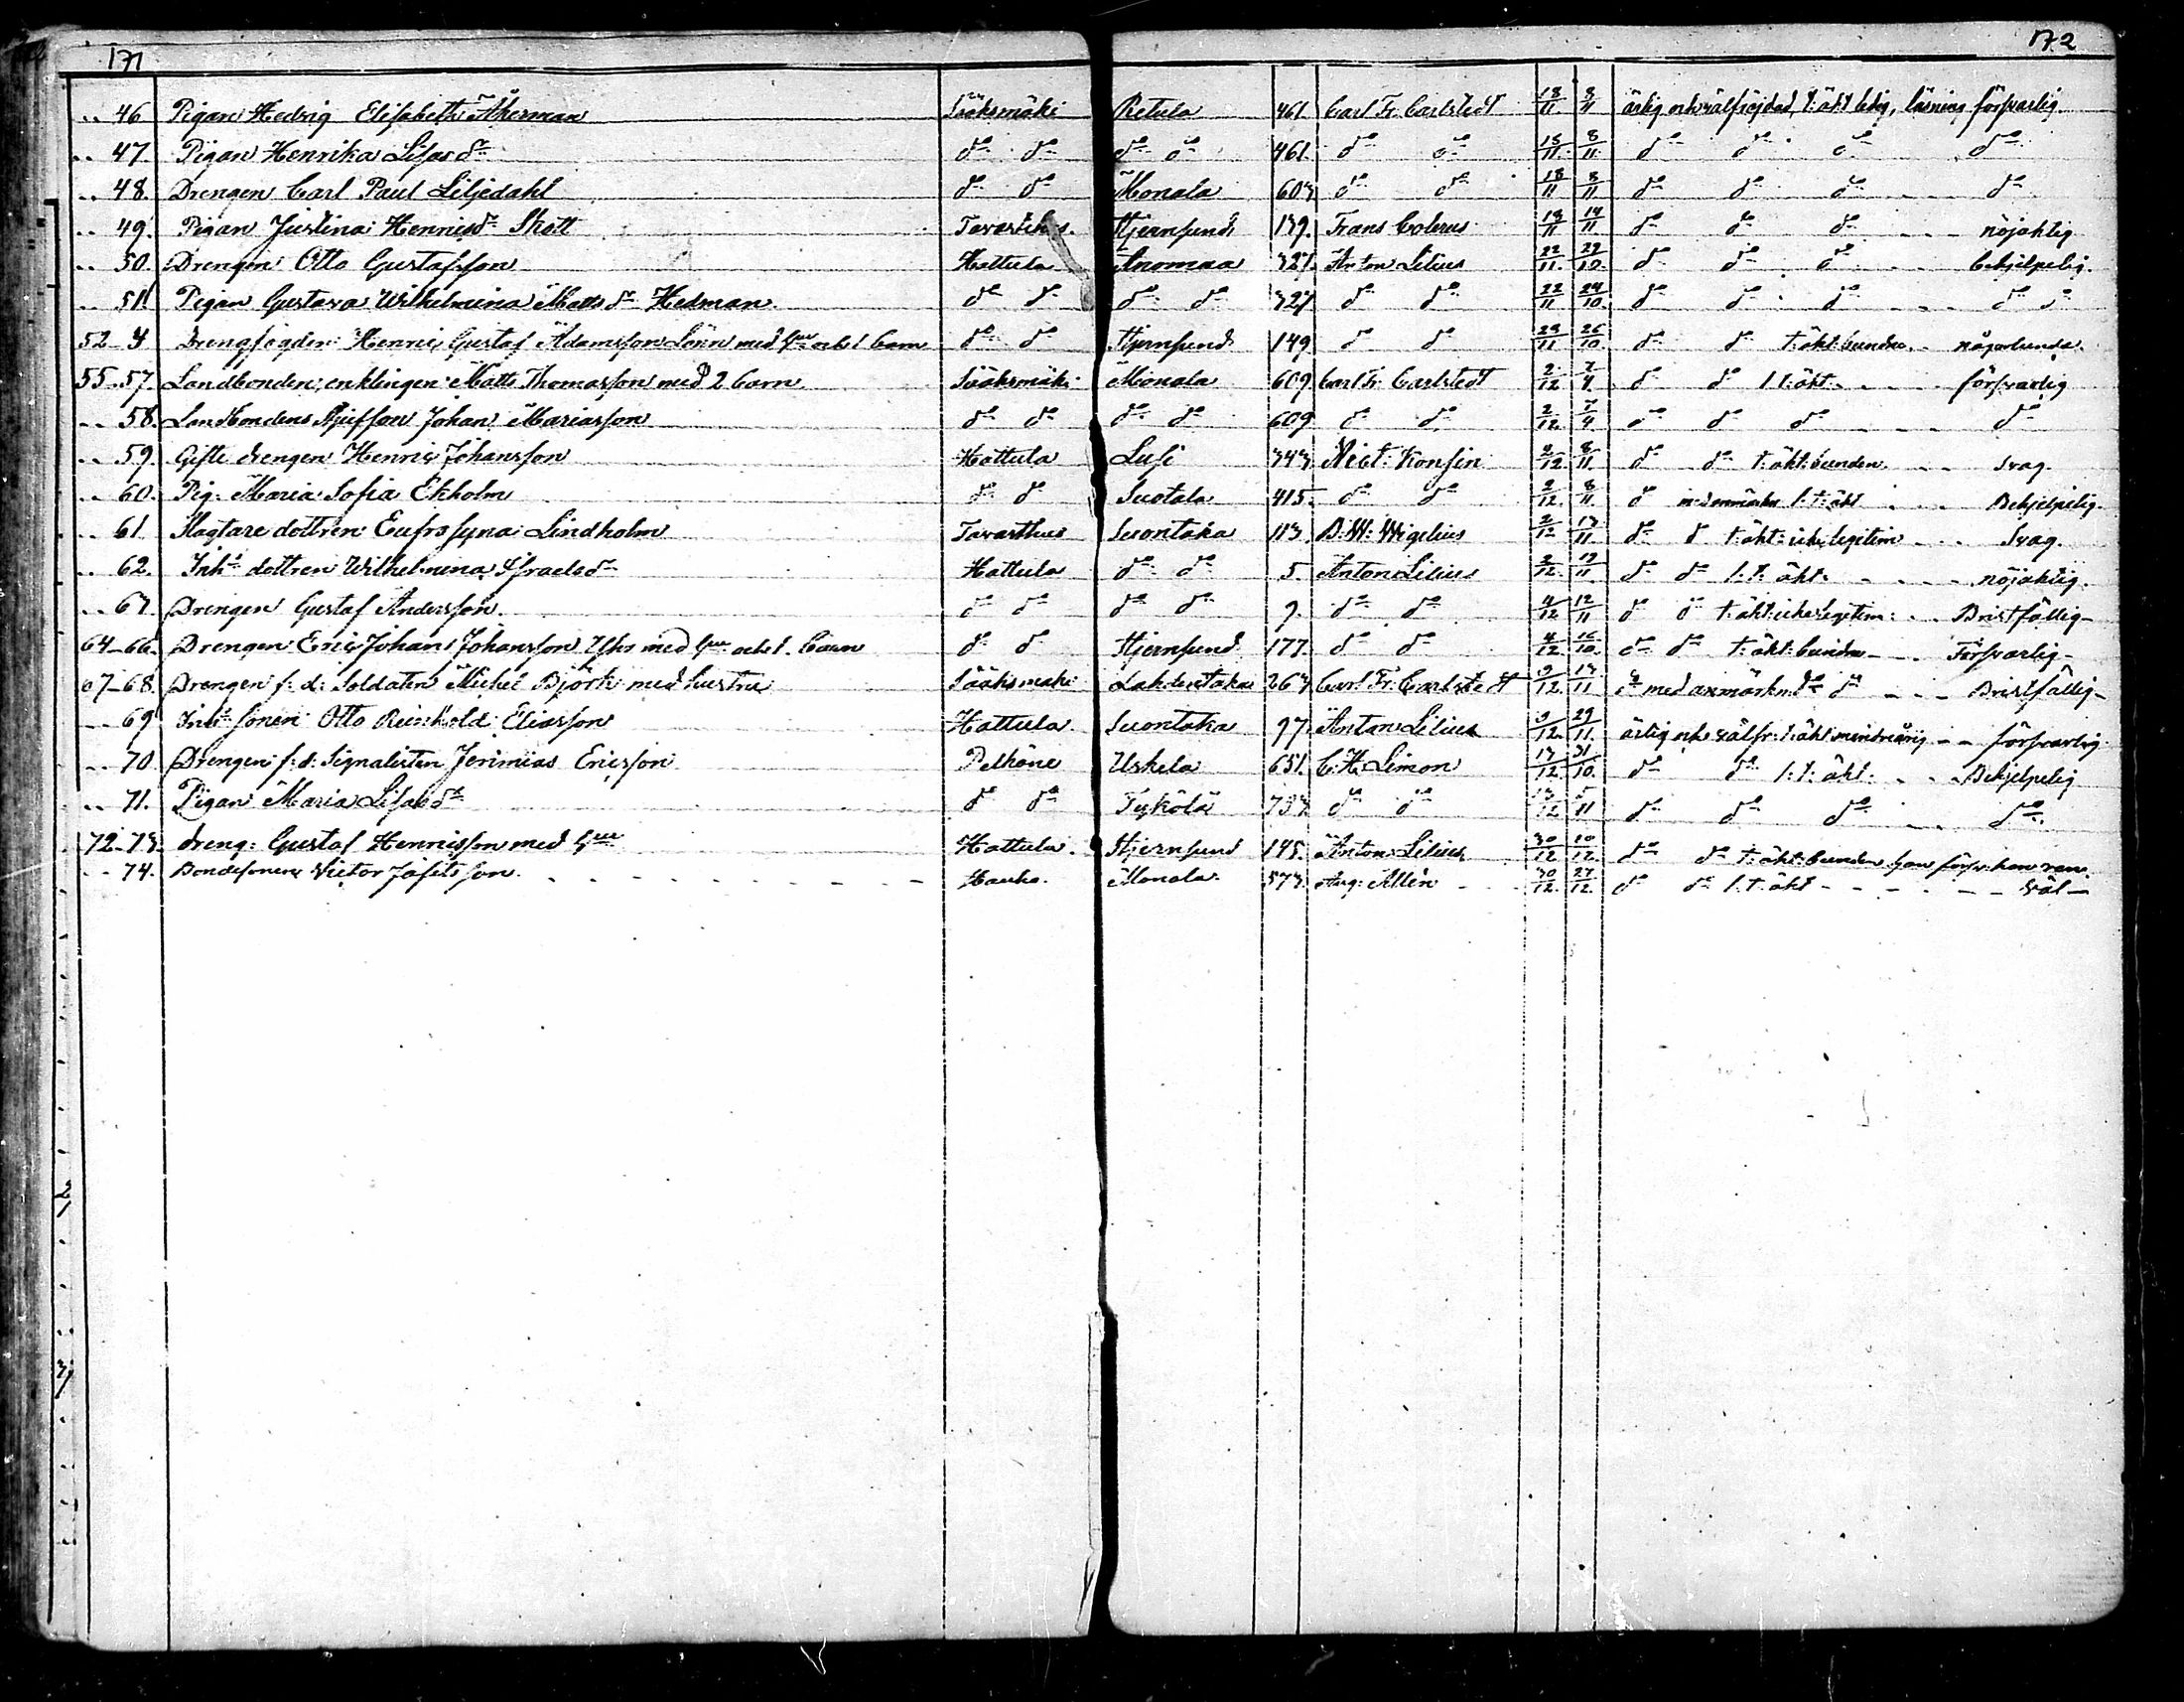 171
172
.. 46 Pigan Hedvig Elisabeth Åkerman Sääksmäki Retula 461 Carl Fr. Carlstedt 18/11 8/11 ärlig och välfrejdad, t: äkt ledig, läsning försvarlig
.. 47. Pigan Henrika Lisas dr do do do do 461. do do 18/11 8/11 do do do do
.. 48. Drengen Carl Paul Liljedahl do do Monala 603 do do 18/11 8/11 do do do do
.. 49. Pigan Justina Henricsdr Skott Tavastehus. Hjernsund 139. Frans Colerus 19/11 14/11 do do do nöjaktig
.. 50. Drengen Otto Gustafsson Hattula Anomaa 327. Anton Lilius 22/11 29/10 do do do behjelpelig.
.. 51. Pigan Gustava Wilhelmina Matts dr Hedman do do do do 327 do do 22/11 24/10 do do do do do
52-4 Drengfogden Henric Gustaf Adamsson Lönn med hu och 1 barn do do Hjernsund 149 do do 29/11 26/10 do do t: äkt: bunden någorlunda.
55-57. Landbonden, enklingen Matts Thomasson med 2 barn Sääksmäki Monala 609 Carl Fr. Carlstedt 2/12 7/4 do do l. t: äkt. försvarlig
.. 58. Landbondens Johan Mariasson do do do do 609 do do 2/12 7/4 do do do do
.. 59. Gifte drengen Henric Johansson Hattula Lusi 343 Konsin 2/12 8/11 do do t: äkt: bunden svag.
.. 60. Pig: Maria Sofia Ekholm do do Suotala 415 do do 2/12 8/11 do l: t: äkt Behjelpelig.
.. 61 Slagtare dottren Eufrosyna Lindholm Tavasthus Suontaka 113 B. W. Wigelius 2/12 13/11 do do t: äkt: icke legitim Svag.
.. 62. Inhs dottren Wilhelmina Israelsdr Hattula do do 5. Anton Lilius 2/12 12/11 do do l: t: äkt. nöjaktig.
.. 63. Drengen Gustaf Andersson do do do do 9. do do 4/12 12/11 do do t: äkt: icke legitim: Bristfällig
64-66. Drengen Eric Johan Johansson med hu och 1. barn do do Hjernsund 177. do do 4/12 16/10. do do t: äkt: bunden Försvarlig
67-68. Drengen f: d: Soldaten Michel Björk med hustru Sääksmäki Lahdentaka 263 Carl Fr. Carlstedt 9/12 13/11 do med anmärkn. do do Bristfällig
.. 69 Inhs sonen Otto Reinhold Eliasson Hattula Suontaka 97 Anton Lilius 9/12. 29/11. ärlig och välfr: t: äkt minderårig försvarlig
.. 70 Drengen f: d: Signalisten Jerimias Ericsson Pelkäne Uskela 651. C. H. Limon 13/12 31/10. do do l: t: äkt. Behjelpelig
.. 71. Pigan Maria Lisas dr do do 733 do do 13/12 5/11 do do do do
72-73. dreng: Gustaf Henricsson med hu Hattula. Hjernsund 145. Anton Lilius 30/12 10/12. do do t: äkt: bunden han förs: hon ren.
.. 74. Bondesonen Victor Josefsson. Hauho. Monala 573. Aug: Allén 30/12. 27/12. do do l: t: äkt väl